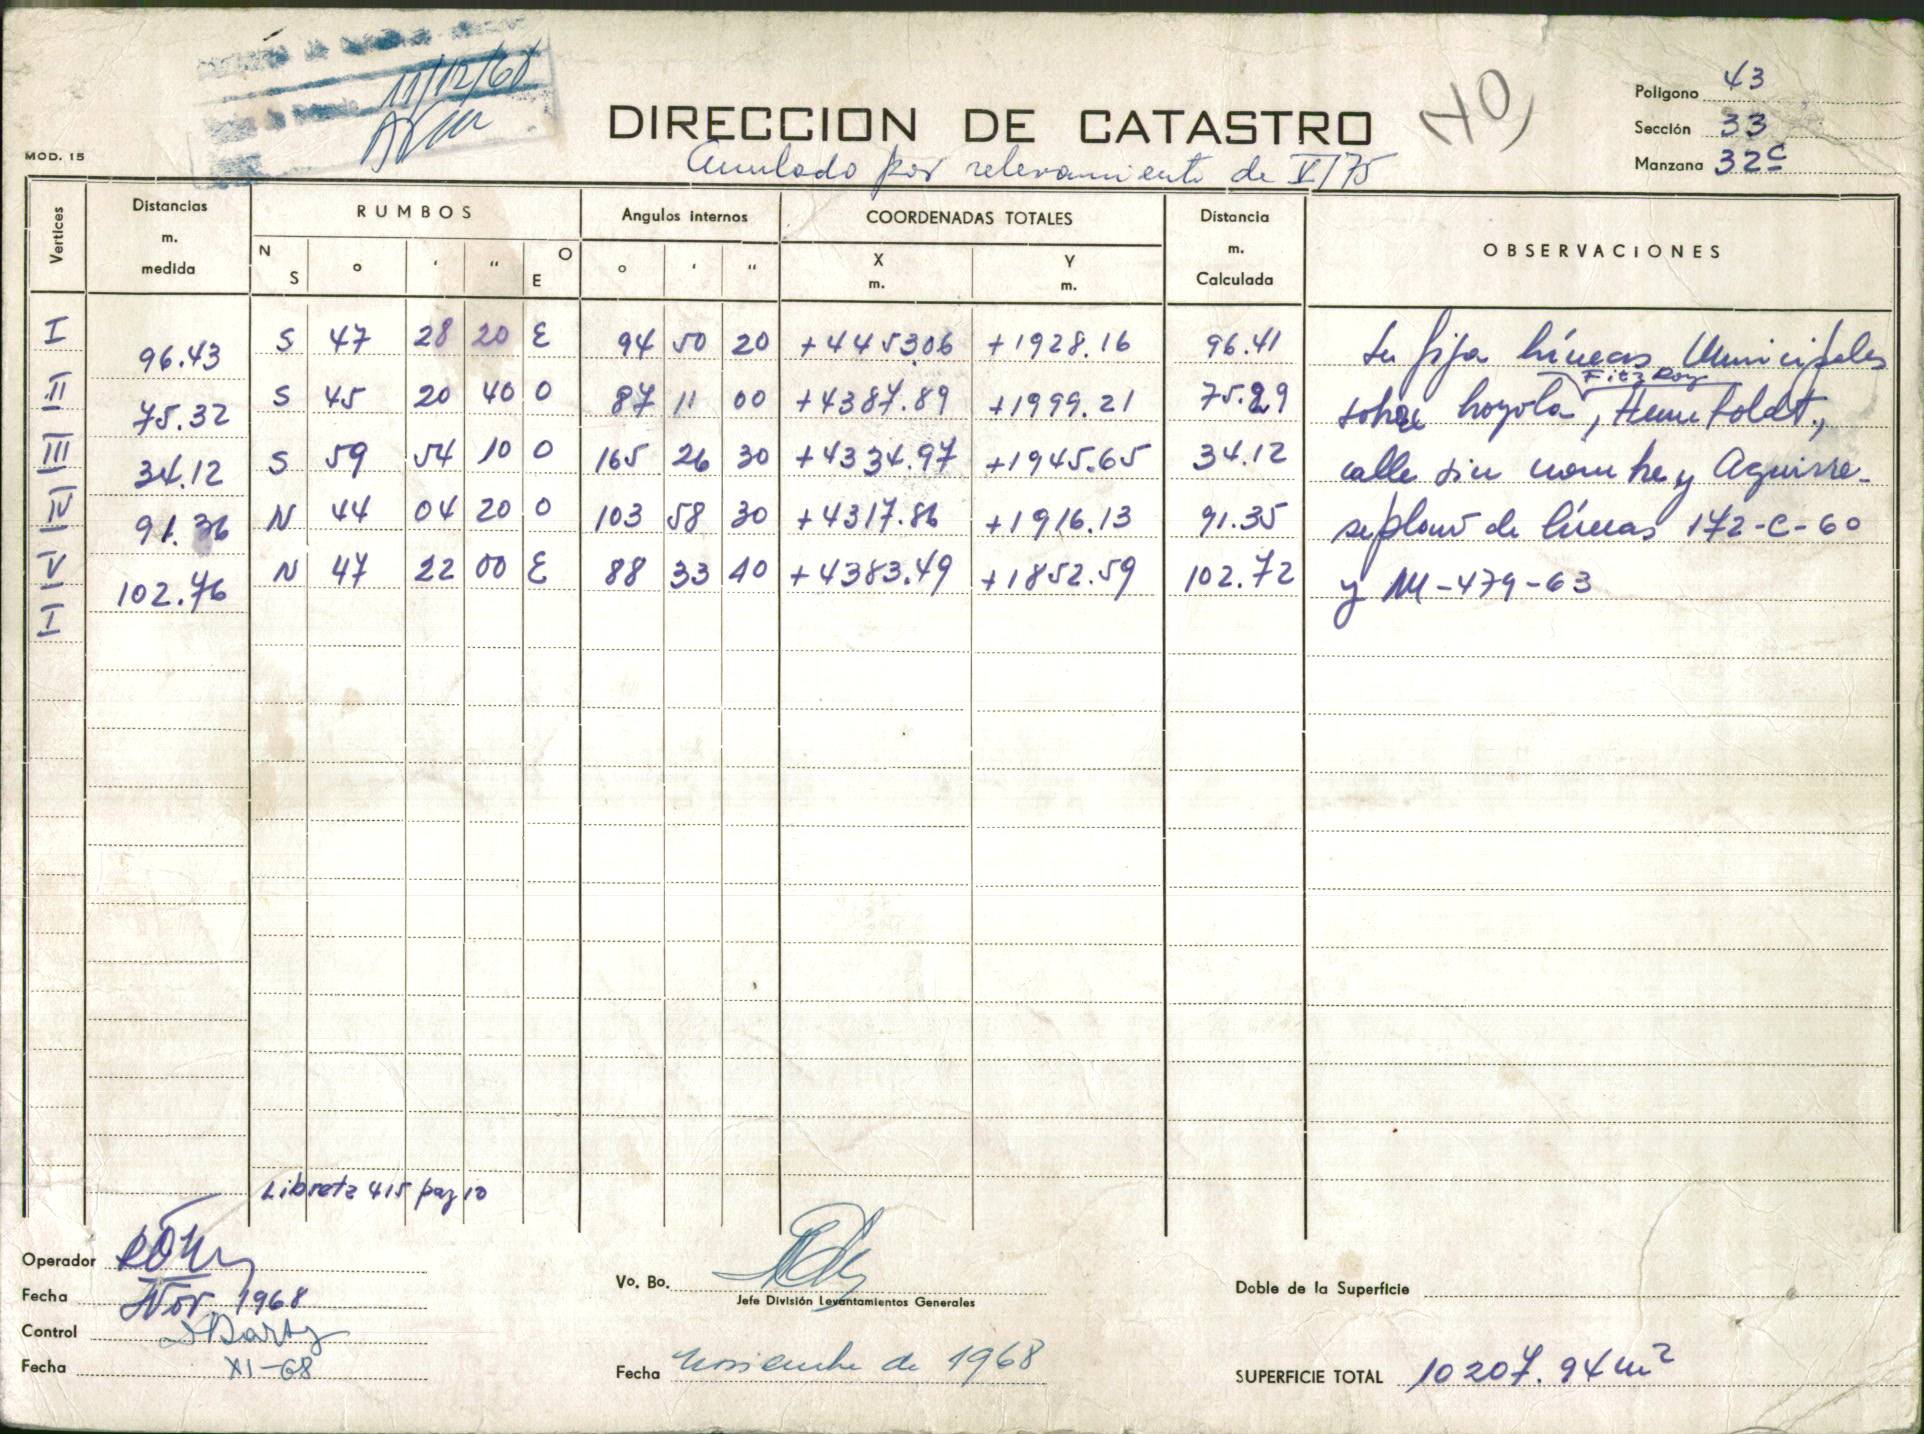 11/12/68
DIRECCION DE CATASTRO
40
Polígono 43
Sección 33
Manzana 32c
MOD. 15
Anulado por relevamiento de V/75
Vertices Distancias m. medida RUMBOS Angulos internos COORDENADAS TOTALES Distancia m. Calculada OBSERVACIONES
N S ° ' " O E ° ' " X m. Y m.
I 96.43 S 47 28 20 E 94 50 20 +4453.06 +1928.16 96.41 Se fija líneas Municipales
II 75.32 S 45 20 40 O 87 11 00 +4387.89 +1999.21 75.29 sobre Loyola, Fitz Roy, Humboldt,
III 34.12 S 59 54 10 O 165 26 30 +4334.97 +1945.65 34.12 calle sin nombre y Aguirre-
IV 91.36 N 44 04 20 O 103 58 30 +4317.86 +1916.13 91.35 s/plano de líneas 172-C-60
V 102.76 N 47 22 00 E 88 33 40 +4383.49 +1852.59 102.72 y M-479-63
I
Libreta 415 pag 10
Operador
Fecha Nov. 1968
Control
Fecha XI-68
Vo. Bo.
Jefe División Levantamientos Generales
Fecha Noviembre de 1968
Doble de la Superficie
SUPERFICIE TOTAL 10207.94 m²